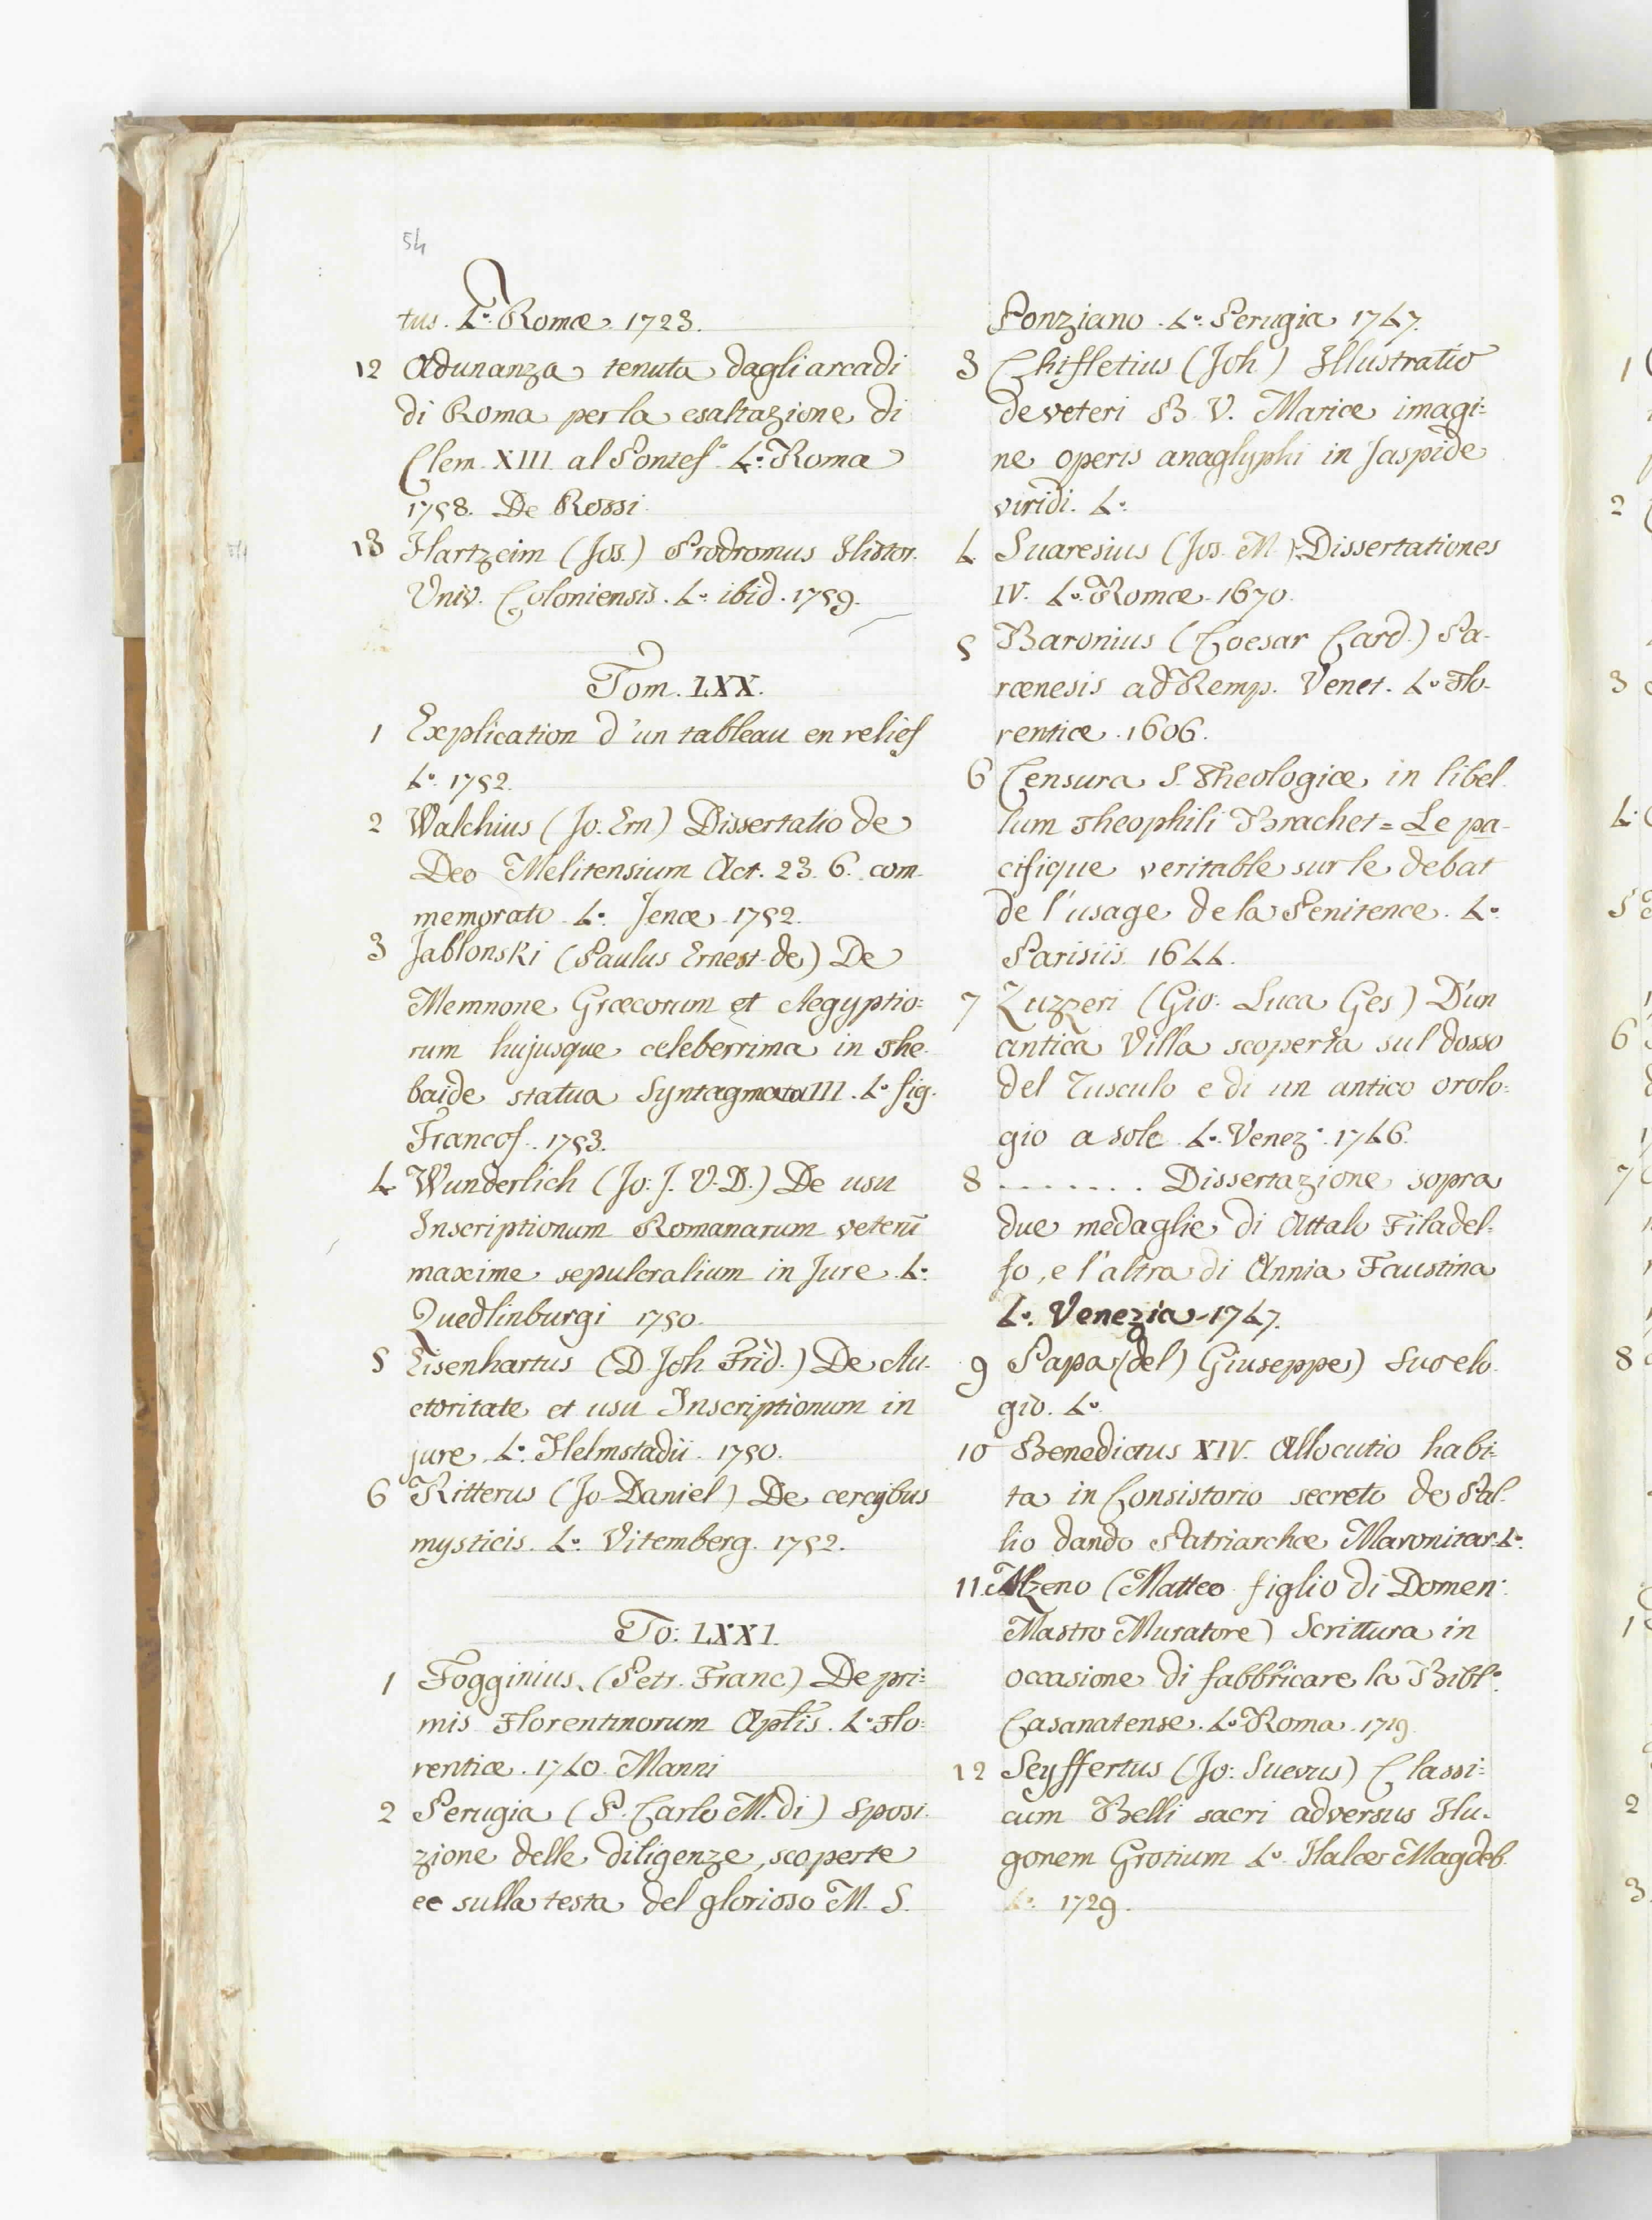 54
tus. 4.º Romæ. 1723.
12 Adunanza tenuta dagli arcadi
di Roma per la esaltazione di
Clem. XIII al Pontef.º 4.º Roma
1758. De Rossi.
13 Hartzeim (Jos.) Prodromus Histor.
Univ. Coloniensis. 4.º ibid. 1759.
Tom. LXX.
1 Explication d'un tableau en relief
4.º 1752.
2 Walchius (Jo: Ern) Dissertatio de
Deo Melitensium Act. 23. 6. com-
memorato 4.º Jenæ 1752.
3 Jablonski (Paulus Ernest. de) De
Memnone Græcorum et Aegyptio=
rum hujusque celeberrima in The-
baide statua Syntagmata III. 4.º fig.
Francof. 1753.
4 Wunderlich (Jo: J. V. D.) De usu
Inscriptionum Romanarum veterū
maxime sepulcralium in Jure. 4.º
Quedlinburgi 1750.
5 Eisenhartus (D. Joh. Frid.) De Au-
ctoritate et usu Inscriptionum in
jure 4.º Helmstadii. 1750.
6 Ritterus (Jo Daniel) De cercybus
mysticis. 4.º Vitemberg. 1752.
To: LXXI.
1 Fogginius (Petr. Franc.) De pri=
mis Florentinorum Aplis. 4.º Flo=
rentiæ. 1740. Manni
2 Perugia (P. Carlo M. di) Sposi-
zione delle diligenze, scoperte
ec sulla testa del glorioso M. S.
Ponziano. 4.º Perugia 1747.
3 Chifletius (Joh) Illustratio
de veteri B. V. Mariæ imagi=
ne operis anaglyphi in Jaspide
viridi. 4.º
4 Suaresius (Jos. M.) Dissertationes
IV. 4.º Romæ. 1670.
5 Baronius (Coesar Card.) Pa-
rænesis ad Remp. Venet. 4.º Flo-
rentiæ. 1606.
6 Censura S. Theologiæ in libel-
lum Theophili Brachet = Le pa-
cifique veritable sur le debat
de l'usage de la Penitence. 4.º
Parisiis 1644.
7 Zuzzeri (Gio: Luca Ges) D'un
antica Villa scoperta sul dosso
del Tusculo e di un antico orolo=
gio a sole 4.º Venez.ª 1746.
8 ....... Dissertazione sopra
due medaglie di Attalo Filadel-
fo, e l'altra di Annia Faustina
4.º Venezia 1747.
9 Papa (del) Giuseppe) Suo elo-
gio. 4.º
10 Benedictus XIV. Allocutio habi=
ta in Consistorio secreto de Pal-
lio dando Patriarchæ Maronitar. 4.º
11. Alzeno (Matteo figlio di Domen:
Mastro Muratore) Scrittura in
occasione di fabbricare la Bibl.ª
Casanatense. 4.º Roma. 1719.
12 Seyffertus (Jo: Suevus) Classi=
cum Belli sacri adversus Hu-
gonem Grotium 4.º Halæ Magdeb.
4.º 1729.